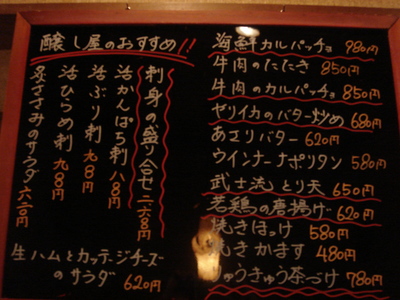 醸し屋のおすすめ!!
刺身の盛り合せ 二六八〇円
活かんぱち刺 八八〇円
活ぶり刺 九八〇円
活ひらめ刺 九八〇円
ささみのサラダ 六二〇円
生ハムとカッテージチーズ
のサラダ 620円
海鮮カルパッチョ 980円
牛肉のたたき 850円
牛肉のカルパッチョ 850円
ヤリイカのバター炒め 680円
あさりバター 620円
ウインナーナポリタン 580円
武士流とり天 650円
若鶏の唐揚げ 620円
焼きほっけ 580円
焼きかます 480円
りゅうきゅう茶づけ 780円